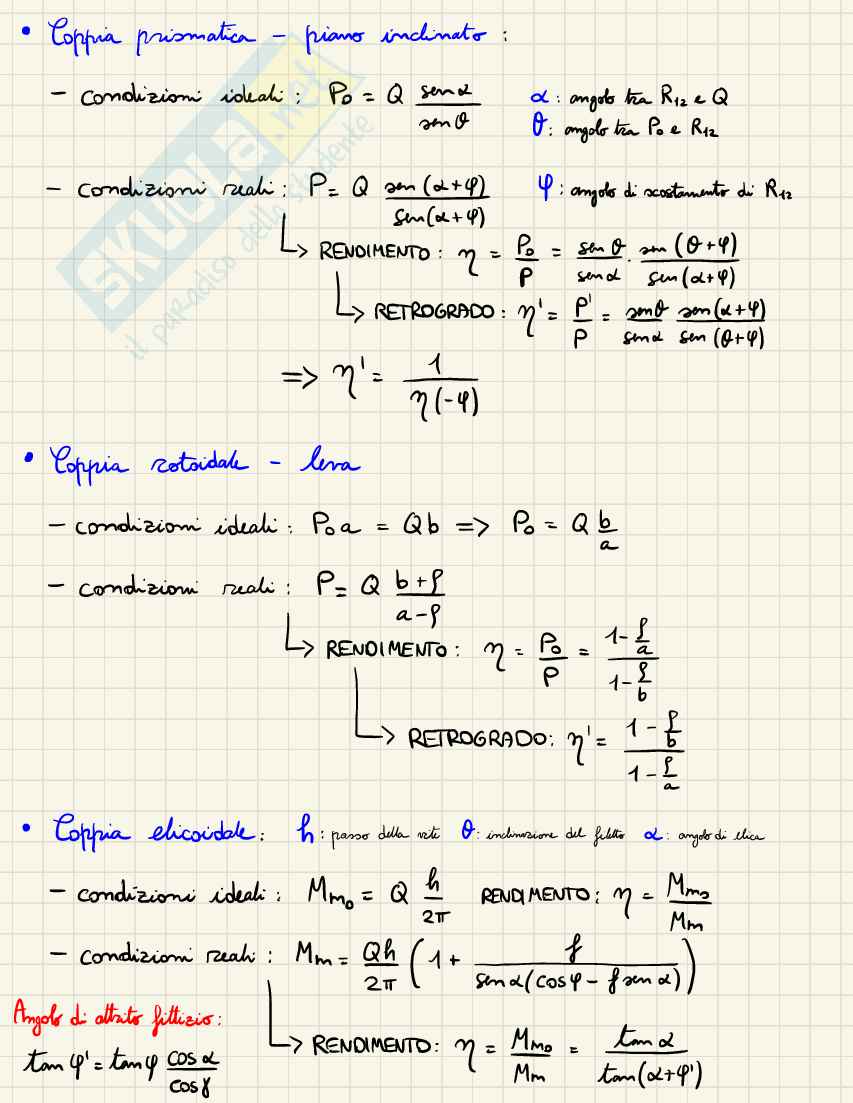 • Coppia prismatica – piano inclinato :
– condizioni ideali : P₀ = Q senα / senθ   α : angolo tra R₁₂ e Q
θ : angolo tra P₀ e R₁₂
– condizioni reali : P = Q sen(α+φ) / sen(α+φ)   φ : angolo di scostamento di R₁₂
↳ RENDIMENTO : η = P₀/P = senθ/senα · sen(θ+φ)/sen(α+φ)
↳ RETROGRADO : η' = P'/P = senθ/senα sen(α+φ)/sen(θ+φ)
=> η' = 1 / η(-φ)
• Coppia rotoidale – leva
– condizioni ideali : P₀a = Qb => P₀ = Q b/a
– condizioni reali : P = Q (b+ρ)/(a-ρ)
↳ RENDIMENTO : η = P₀/P = (1-ρ/a)/(1-ρ/b)
↳ RETROGRADO : η' = (1-ρ/b)/(1-ρ/a)
• Coppia elicoidale : h : passo della vite   θ : inclinazione del filetto   α : angolo di elica
– condizioni ideali : Mm₀ = Q h/2π   RENDIMENTO : η = Mm₀/Mm
– condizioni reali : Mm = Qh/2π (1 + f / senα(cosφ – f senα))
Angolo di attrito fittizio :
tanφ' = tanφ cosα/cosγ
↳ RENDIMENTO : η = Mm₀/Mm = tanα / tan(α+φ')
SKUOLA.net
il paradiso dello studente